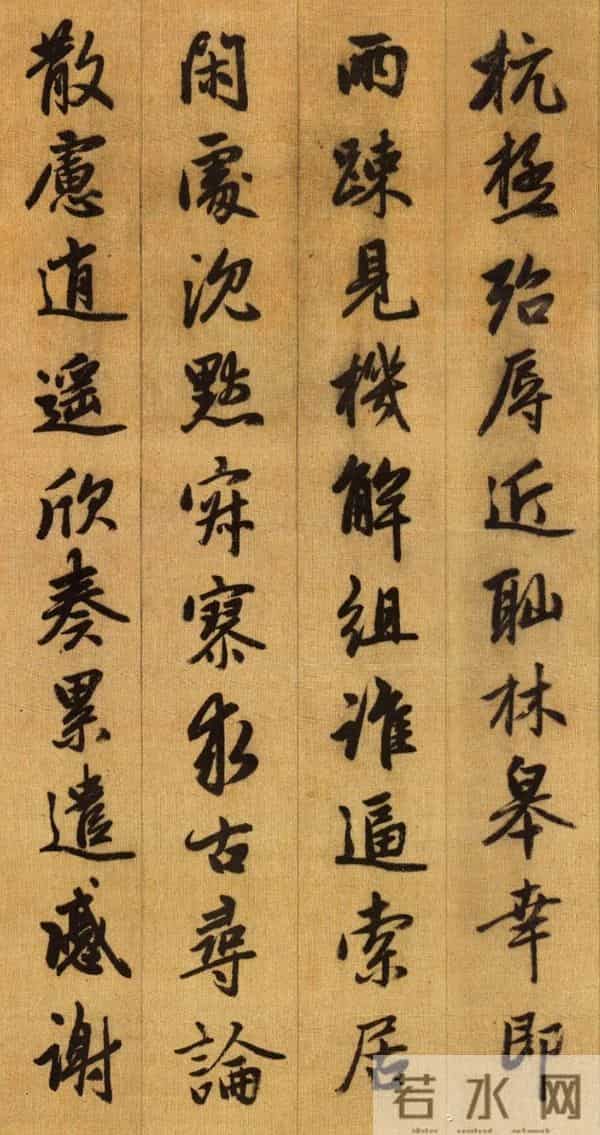 抗極殆辱近耻林皋幸即
兩踈見機解組誰逼索居
閑處沉默寂寥求古尋論
散慮逍遥欣奏累遣慼謝
若水网